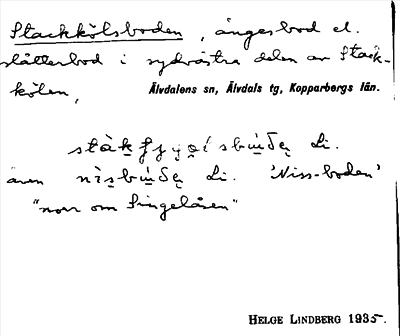 Stackkölsboden, ängesbod el.
slåtterbod i sydvästra delen av Stack-
kölen,
Älvdalens sn, Älvdals tg, Kopparbergs län.
Li.
även Li. 'Niss-boden'
"norr om Singelåsen"
HELGE LINDBERG 1935.